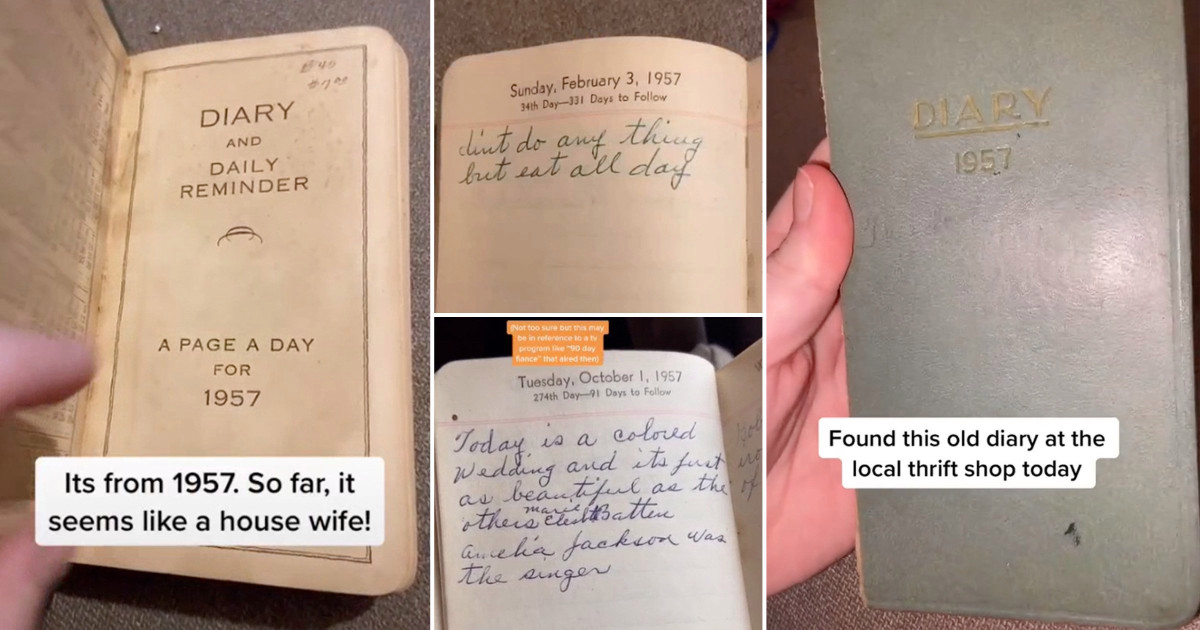 DIARY
AND
DAILY
REMINDER
A PAGE A DAY
FOR
1957
Its from 1957. So far, it
seems like a house wife!
Sunday, February 3, 1957
34th Day—331 Days to Follow
dint do any thing
but eat all day
(Not too sure but this may
be in reference to a tv
program like "90 day
fiance" that aired then)
Tuesday, October 1, 1957
274th Day—91 Days to Follow
Today is a colored
Wedding and its just
as beautiful as the
others Batten
Amelia Jackson was
the singer
DIARY
1957
Found this old diary at the
local thrift shop today